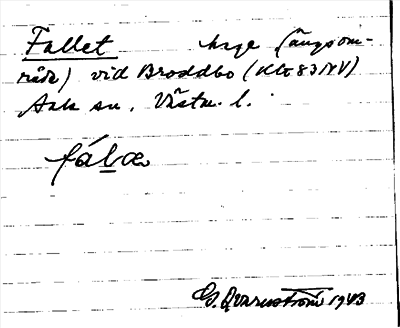 Fallet hage (ängsom-
råde) vid Broddbo (Kbl 83 NV)
sn. Västm. l.
fál
G. Qvarnström 1943